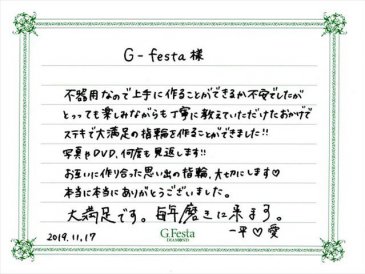 G-festa 様
不器用なので上手に作ることができるか不安でしたが
とっっても楽しみながらも丁寧に教えていただけたおかげで
ステキで大満足の指輪を作ることができました!!
写真やDVD、何度も見返します!!
お互いに作り合った思い出の指輪、大切にします♡
本当に本当にありがとうございました。
大満足です。毎年磨きに来ます。
2019.11.17
G.Festa
DIAMOND
一平♡愛